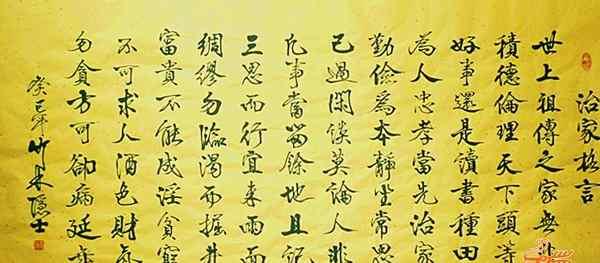 治家格言
世上祖傳之家無
積德倫理天下頭等
好事還是讀書種田
為人忠孝當先治家
勤儉為本靜坐常思
己過閑談莫論人非
凡事當留餘地且記
三思而行宜未雨而
綢繆勿臨渴而掘井
富貴不能成淫貧窮
不可求人酒色財氣
勿貪方可卻病延年
癸巳年隱士